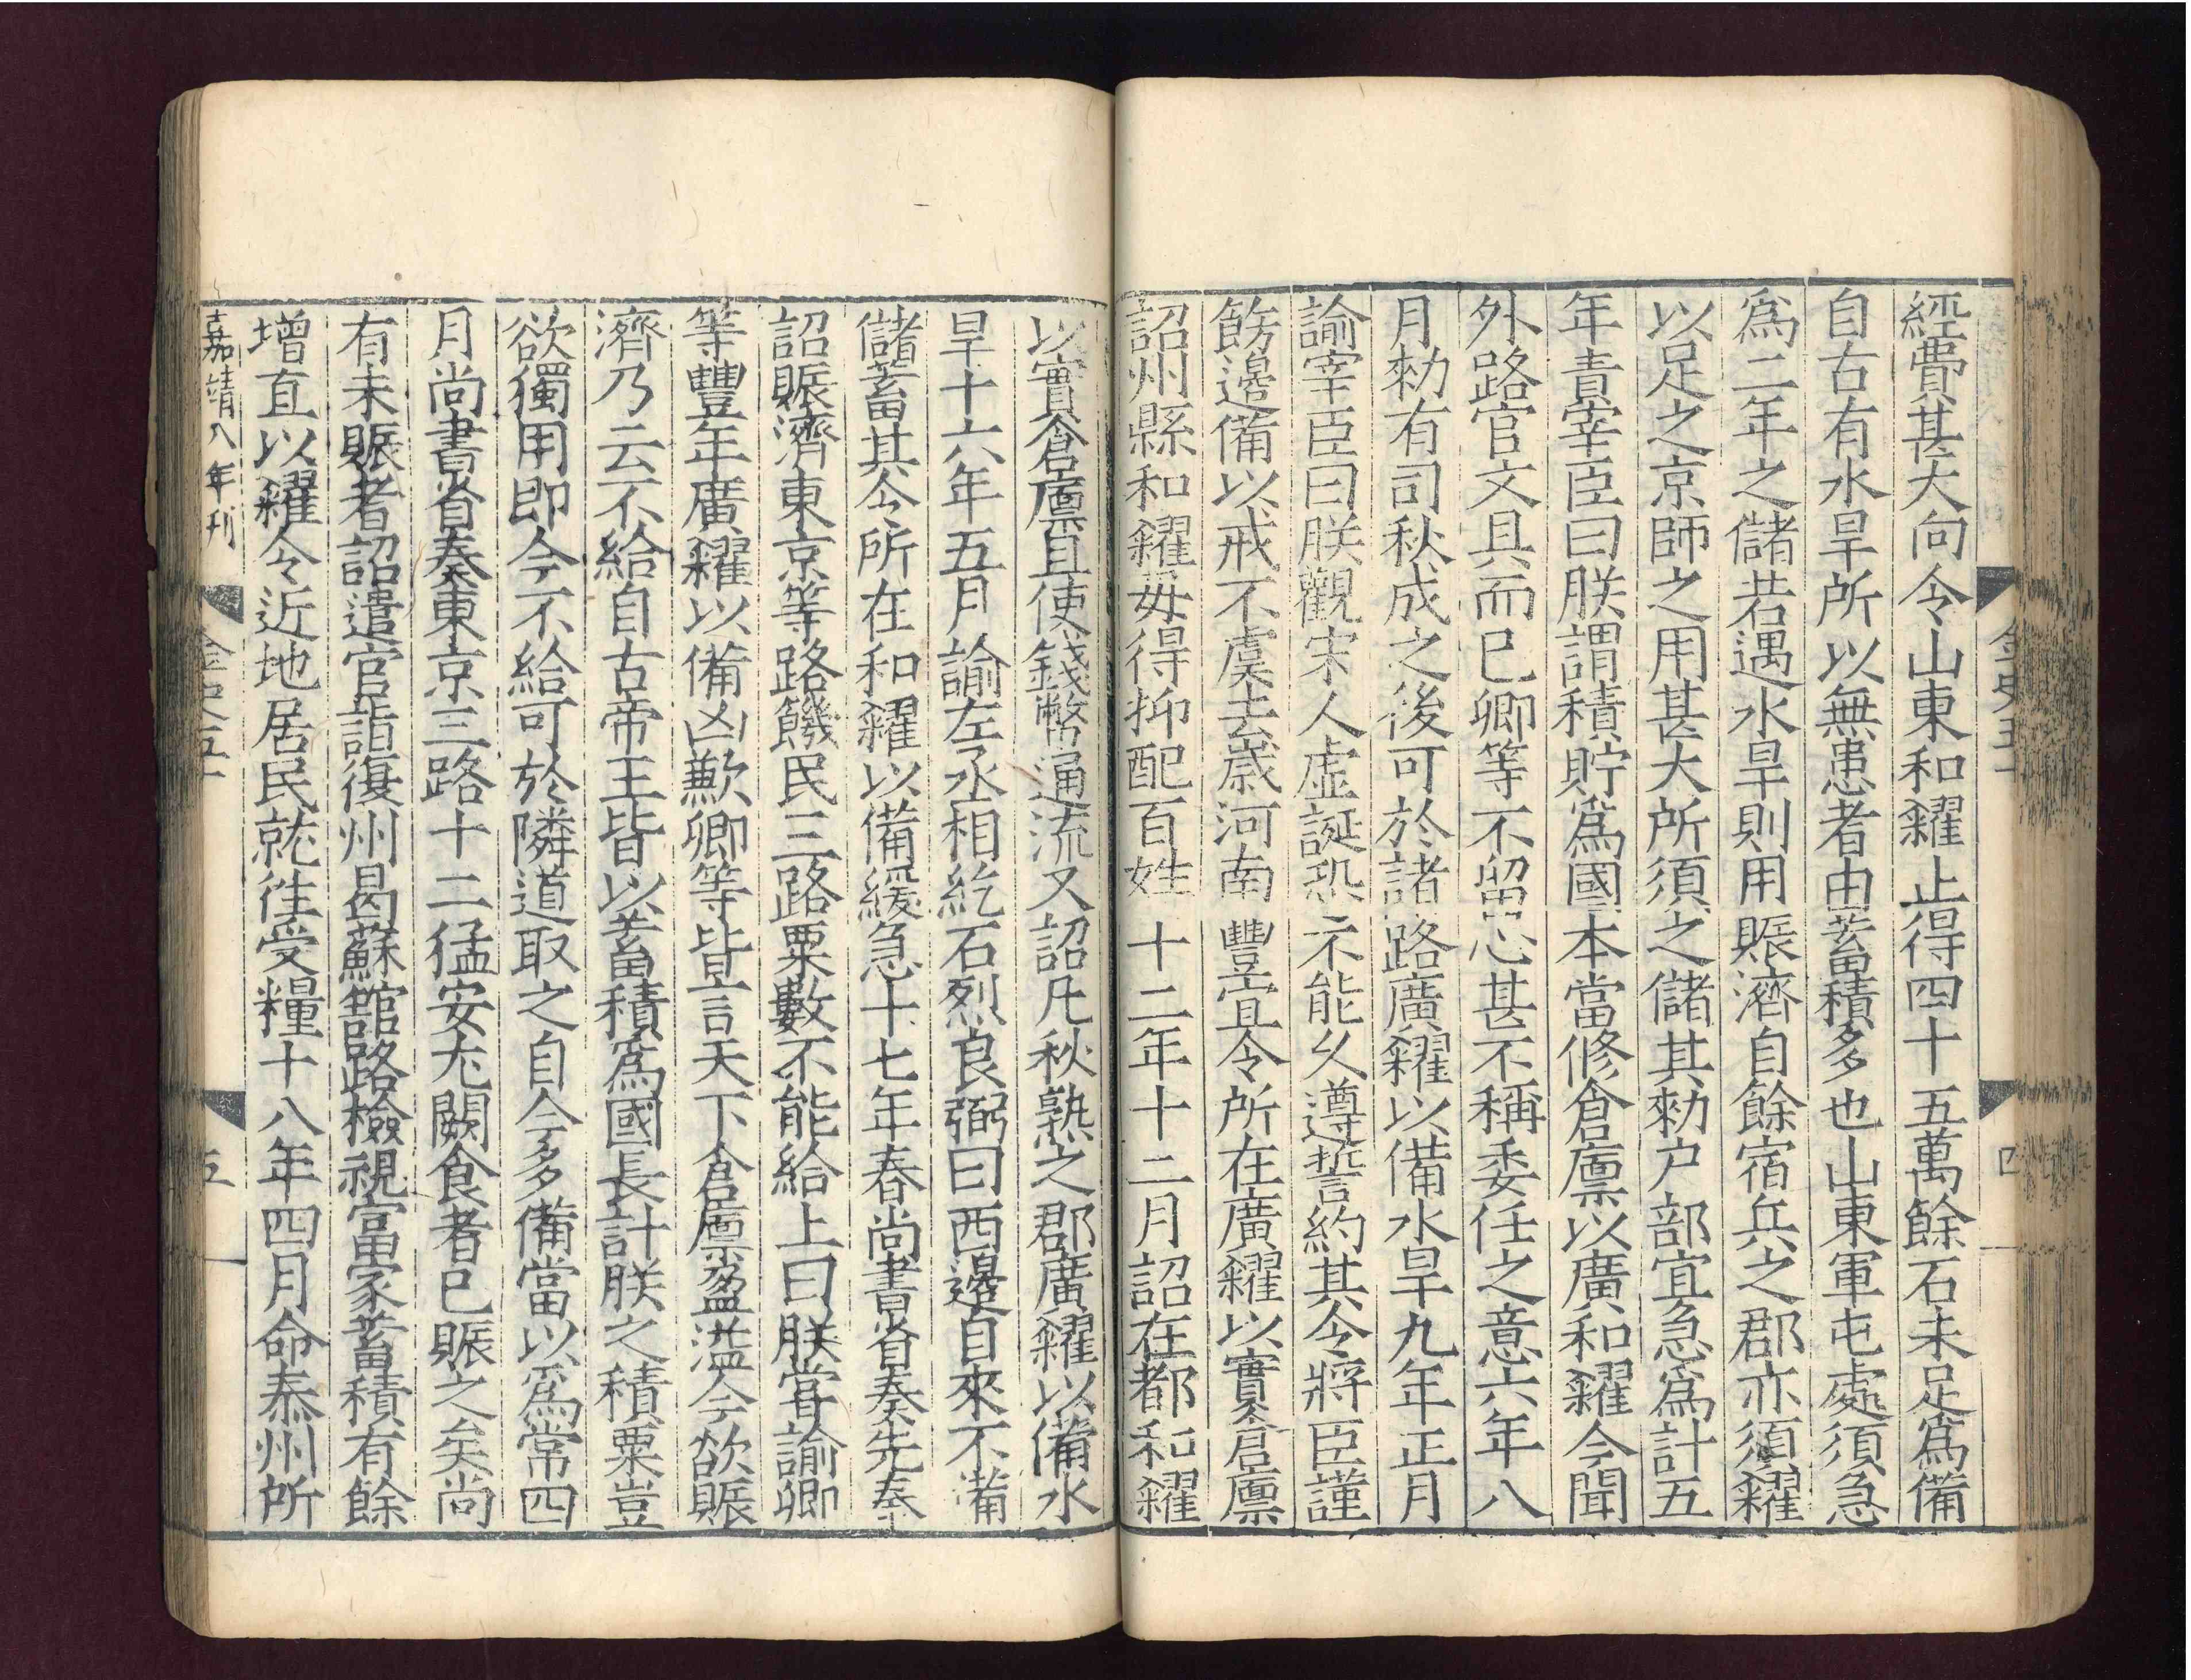 經費甚大向令山東和糴止得四十五萬餘石未足爲備
自古有水旱所以無患者由蓄積多也山東軍屯處須急
爲二年之儲若遇水旱則用賑濟自餘宿兵之郡亦須糴
以足之京師之用甚大所須之儲其勑户部宜急爲計五
年責宰臣曰朕謂積貯爲國本當修倉廪以廣和糴今聞
外路官文具而已卿等不留心甚不稱委任之意六年八
月勑有司秋成之後可於諸路廣糴以備水旱九年正月
諭宰臣曰朕觀宋人虛誕恐不能久遵誓約其令將臣謹
飭邊備以戒不虞去歲河南豐宜令所在廣糴以實倉廪
詔州縣和糴毋得抑配百姓十二年十二月詔在都和糴
以實倉廪且使錢幣通流又詔凡秋熟之郡廣糴以備水
旱十六年五月諭左丞相紇石烈良弼曰西邊自來不備
儲蓄其令所在和糴以備緩急十七年春尚書省奏先奉
詔賑濟東京等路饑民三路粟數不能給上曰朕嘗諭卿
等豐年廣糴以備凶歉卿等皆言天下倉廪盈溢今欲賑
濟乃云不給自古帝王皆以蓄積爲國長計朕之積粟豈
欲獨用即今不給可於隣道取之自今多備當以爲常四
月尚書省奏東京三路十二猛安尤闕食者已賑之矣尚
有未賑者詔遣官詣復州曷蘇館路檢視富家蓄積有餘
增直以糴令近地居民就往受糧十八年四月命泰州所
嘉靖八年刊
金史五十
五